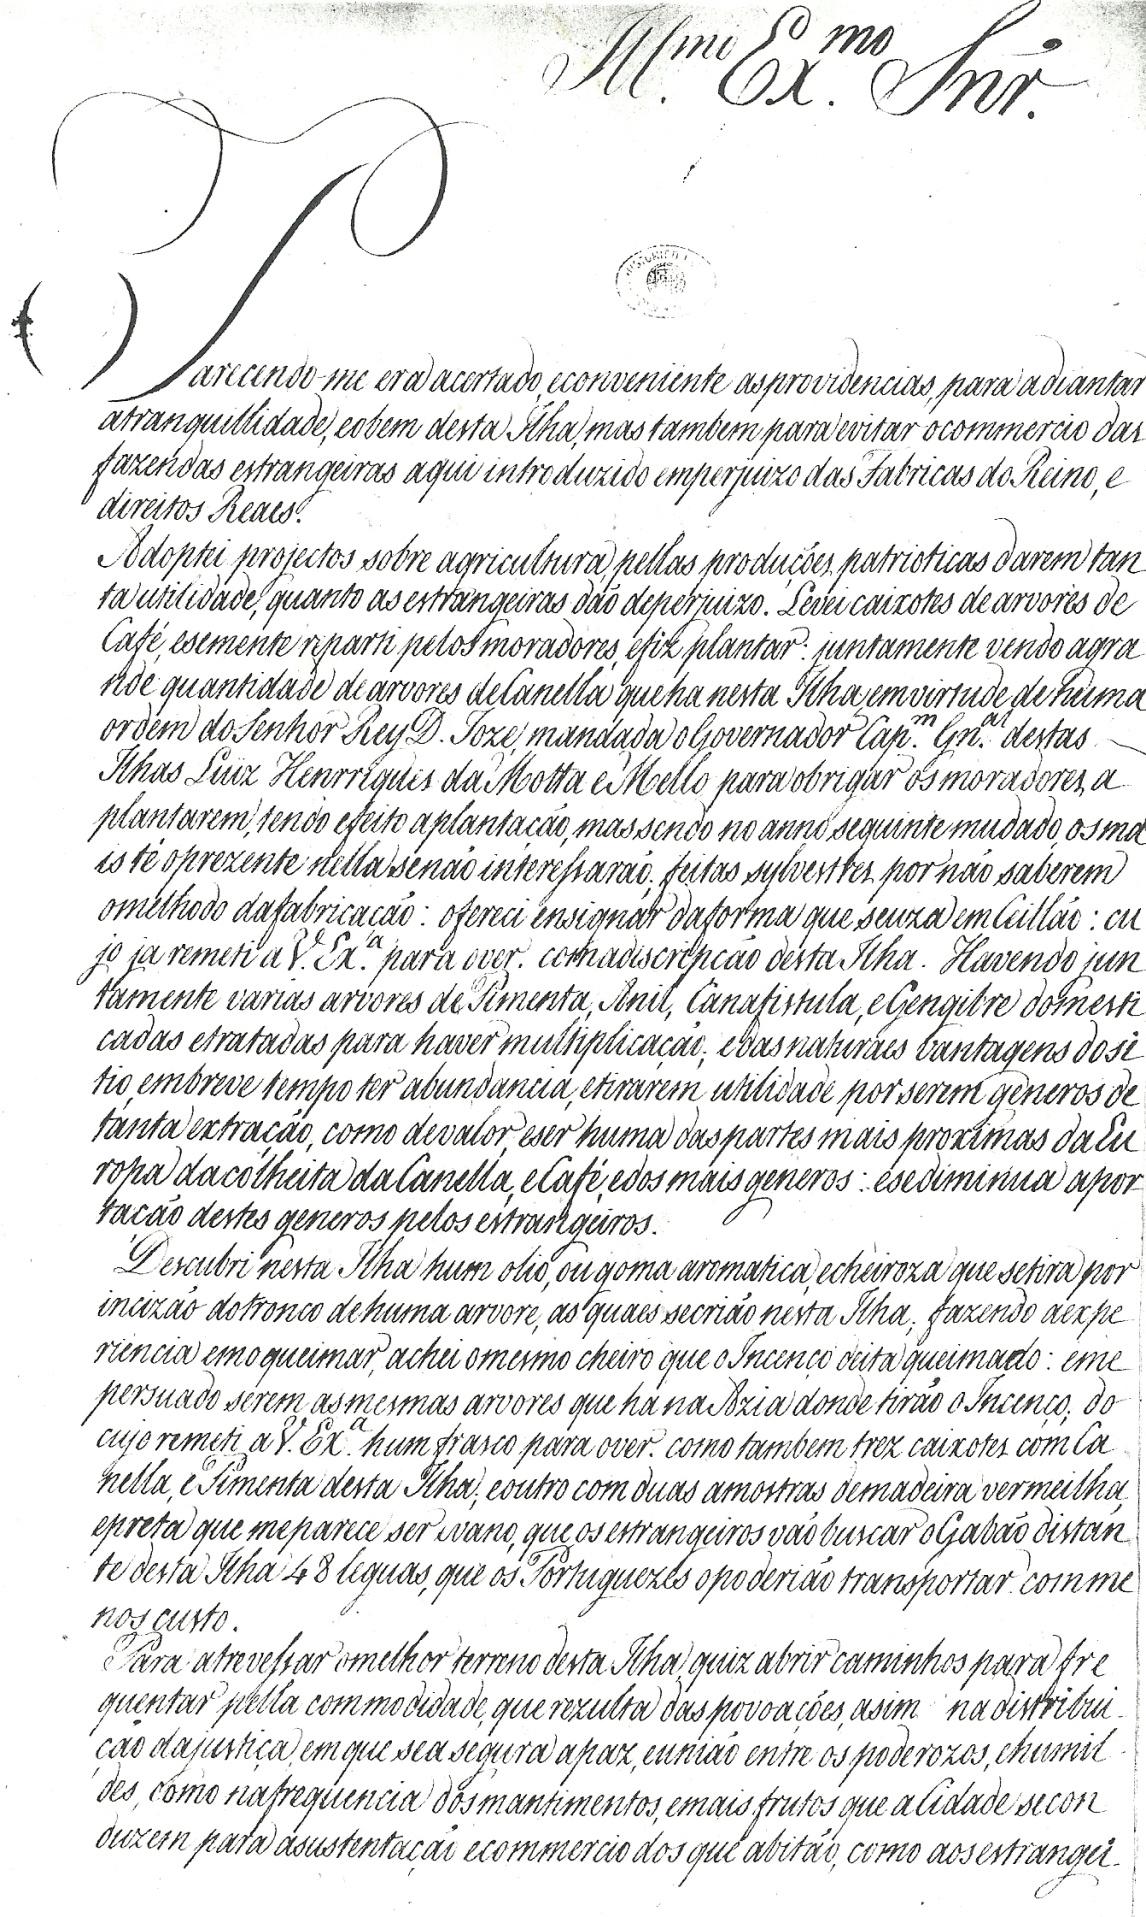 Ill.mo Ex.mo Snr.
Parecendo-me era acertado, e conveniente as providencias, para adiantar
a tranquillidade, eobem desta Ilha, mas tambem para evitar o commercio das
fazendas estrangeiras aqui introduzido em perjuizo das Fabricas do Reino, e
direitos Reaes.
Adoptei projectos sobre agricultura, pellas produções patrioticas darem tan
ta utilidade, quanto as estrangeiras dão de perjuizo. Levei caixotes de arvores de
Café, e semente reparti pelos moradores, e fiz plantar: juntamente vendo a gra
nde quantidade de arvores de Canella, que ha nesta Ilha, em virtude de huma
ordem do Senhor Rey D. Joze, mandada o Governador Cap.m Gn.al destas
Ilhas Luiz Henrriques da Motta e Mello para obrigar os moradores, a
plantarem, tendo efeito a plantação, mas sendo no anno seguinte mudado, os ma
is té o prezente nella senão interessarão, feitas sylvestres por não saberem
o melhodo da fabricação: ofereci ensignar da forma que seuza em Ceillão: cu
jo ja remeti a V. Ex.a para o ver. com a discripcão desta Ilha. Havendo jun
tamente varias arvores de Pimenta, Anil, Canafistula, e Gengibre domesti
cadas e tratadas para haver multiplicação, e das naturaes vantagens do si
tio, em breve tempo ter abundancia, e tirarem utilidade por serem generos de
tanta extração, como de valor, e ser huma das partes mais proximas da Eu
ropa da cólheita da Canella, e Café, e dos mais generos: e se diminua a por
tacão destes generos pelos estrangeiros.
Descubri nesta Ilha hum olio, ou goma aromatica, e cheiroza que se tira por
incizão do tronco de huma arvore, as quaes se crião nesta Ilha, fazendo a expe
riencia em o queimar, achei o mesmo cheiro que o Incenço deita queimado: e me
persuado serem as mesmas arvores que há na Azia donde tirão o Incenço, do
cujo remeti a V. Ex.a hum frasco para o ver. como tambem trez caixotes com Ca
nella, e Pimenta desta Ilha, e outro com duas amostras de madeira vermeilha,
e preta que me parece ser ivano, que os estrangeiros vão buscar o Gabão distan
te desta Ilha 48 leguas, que os Portuguezes o poderião transportar com me
nos custo.
Para atrevessar o melhor terreno desta Ilha, quiz abrir caminhos para fre
quentar pella commodidade, que rezulta das povoações, asim na distribui-
ção da justiça, em que se a segura a paz, e união entre os poderozos, e humil
des, como na frequencia dos mantimentos, e mais frutos que a Cidade se con
duzem para a sustentação e commercio dos que abitão, como aos estrangei-